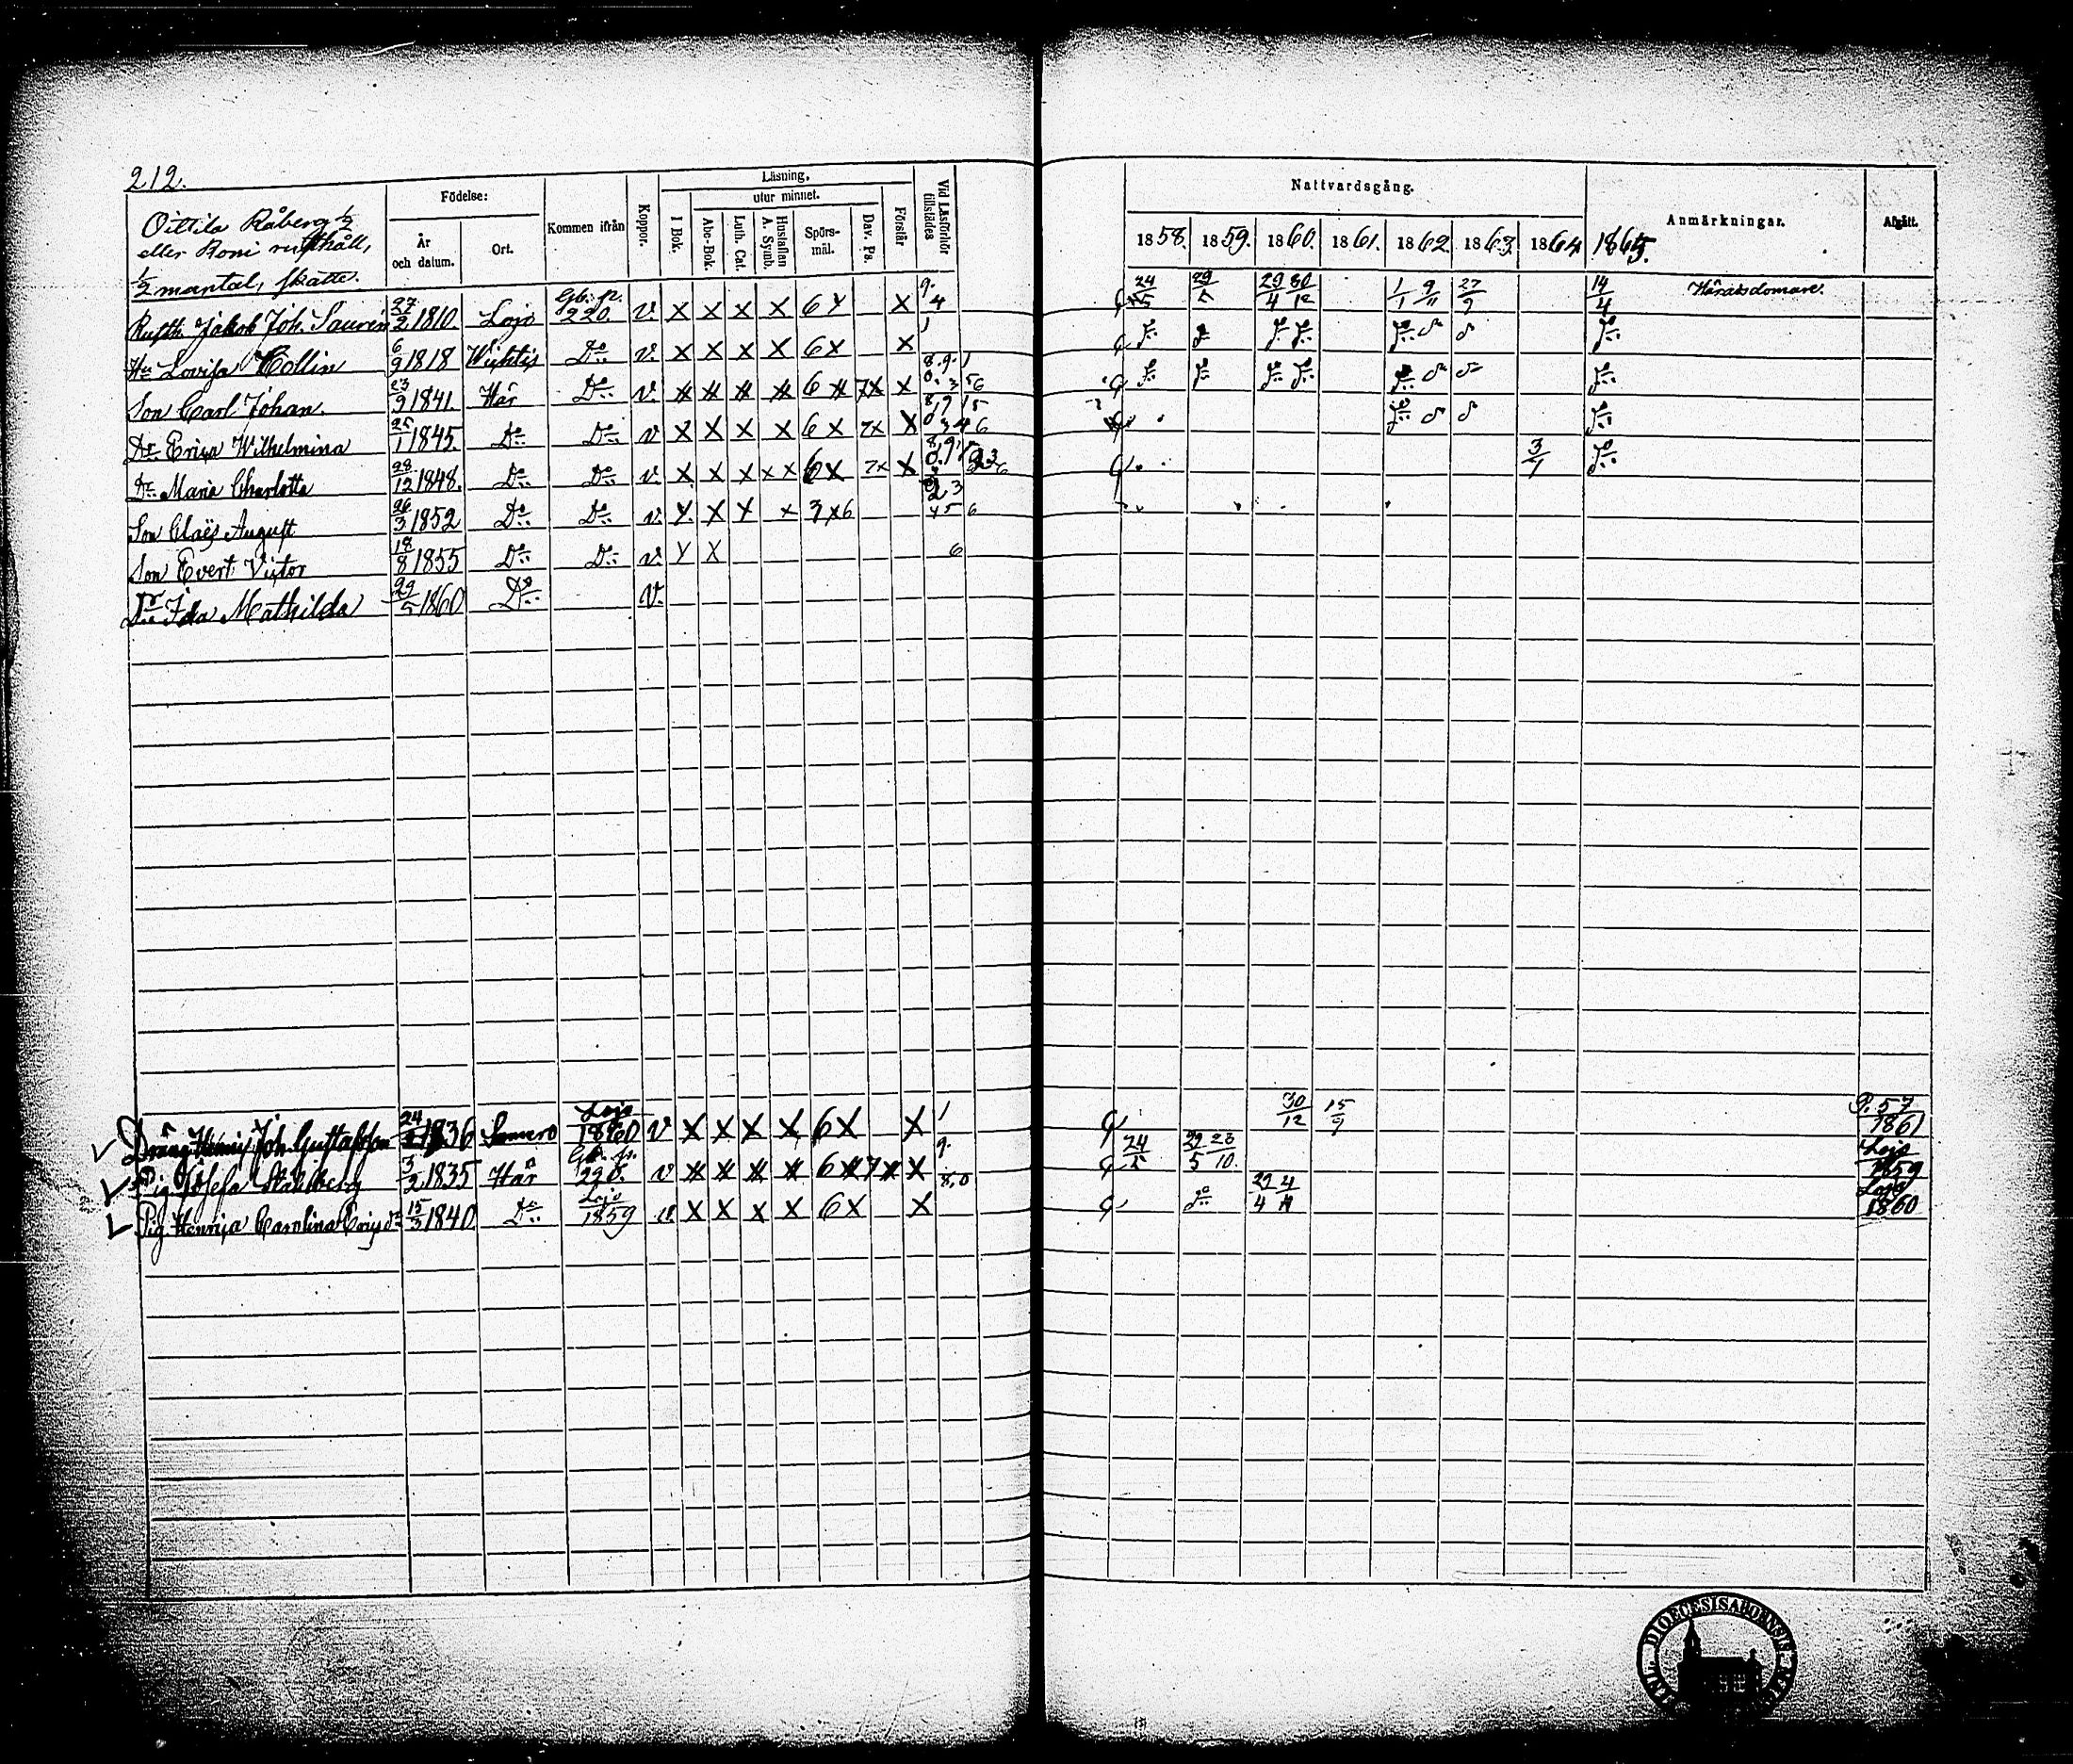 212.
Födelse:
Läsning,
utur minnet.
År och datum.
Ort.
Kommen ifrån
Koppor.
I Bok.
Abc-Bok.
Luth. Cat.
Hustaflan A. Symb.
Spörsmål.
Dav. Ps.
Förstår
Vid Läsförhör tillstädes
Nattvardsgång.
1858. 1859. 1860. 1861. 1862. 1863. 1864 1865.
Anmärkningar.
Afgått.
Oittila Råberg 1/2
eller Roni rusthåll,
1/2 mantal, skatte.
Rusth. Jakob Joh. Saurén 27/2 1810. Lojo Gb. p. 220. v. X X X X 6 X X 9. 4 24/5 29/5 29/4 30/12 1/1 9/11 27/9 14/4 Häradsdomare.
Hu Lovisa Collin 6/9 1818 Wichtis Do v. X X X X 6 X X 1
Son Carl Johan. 23/9 1841. Här Do v. X X X X 6 X 7 X X
Dr Erica Wilhelmina 25/1 1845. Do Do v X X X X 6 X 7 X X
Dr Maria Charlotta 28/12 1848. Do Do v. X X X X X 6 X 7 X X 3/7
Son Claës August 26/3 1852 Do Do v. X X X X 3 X 6
Son Evert Victor 18/8 1855 Do Do v. X X 6
Dr Ida Mathilda 29/5 1860 Do v.
Dräng Henric Joh. Gustafsson 1836 Somero Lojo 1860 v X X X X 6 X X 1 30/12 15/9 P. 57 1861
Pig. Josefa Ståhlberg 3/2 1835 Här Gb. p. 220. v X X X X 6 X 7 X X 9. 24/5 29/5 23/10. Lojo 1859
Pig. Henrica Carolina Ericsdr 15/3 1840. Do Lojo 1859 v. X X X X 6 X X 8,0 Do 29/4 Lojo 1860